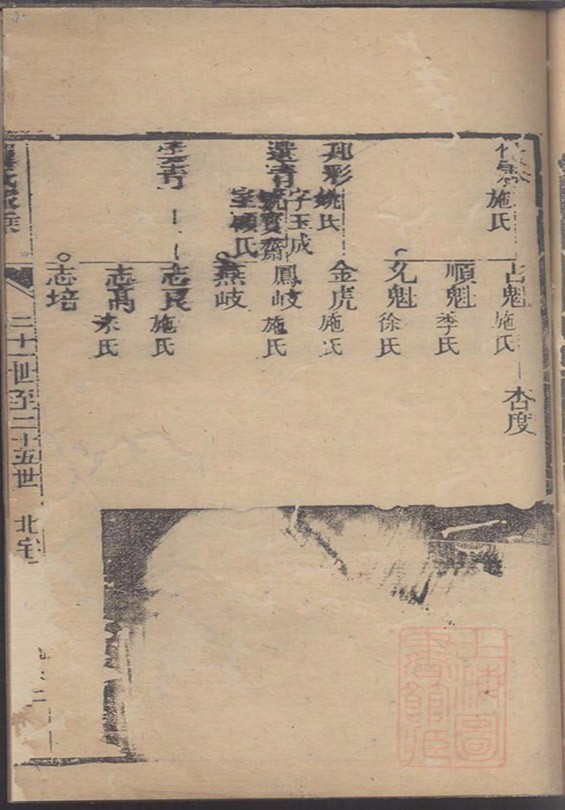 施氏
占魁 施氏
杏度
順魁 季氏
魁 徐氏
彩 姚氏
金虎 施氏
遴青 字玉成
號寶齋
室顧氏
鳳岐 施氏
燕岐
青
志良 施氏
志高 朱氏
志培
二十一世至二十五世 北宅
上海圖書館藏